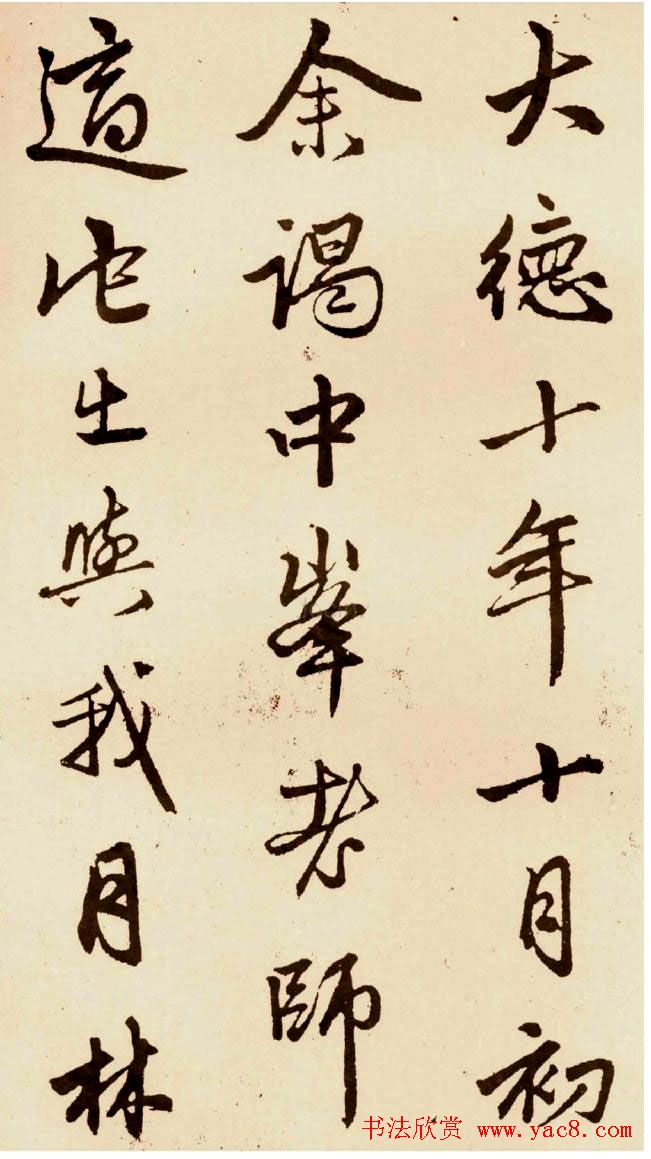 大德十年十月初
余謁中峯老師
適此出與我月林
书法欣赏 www.yac8.com